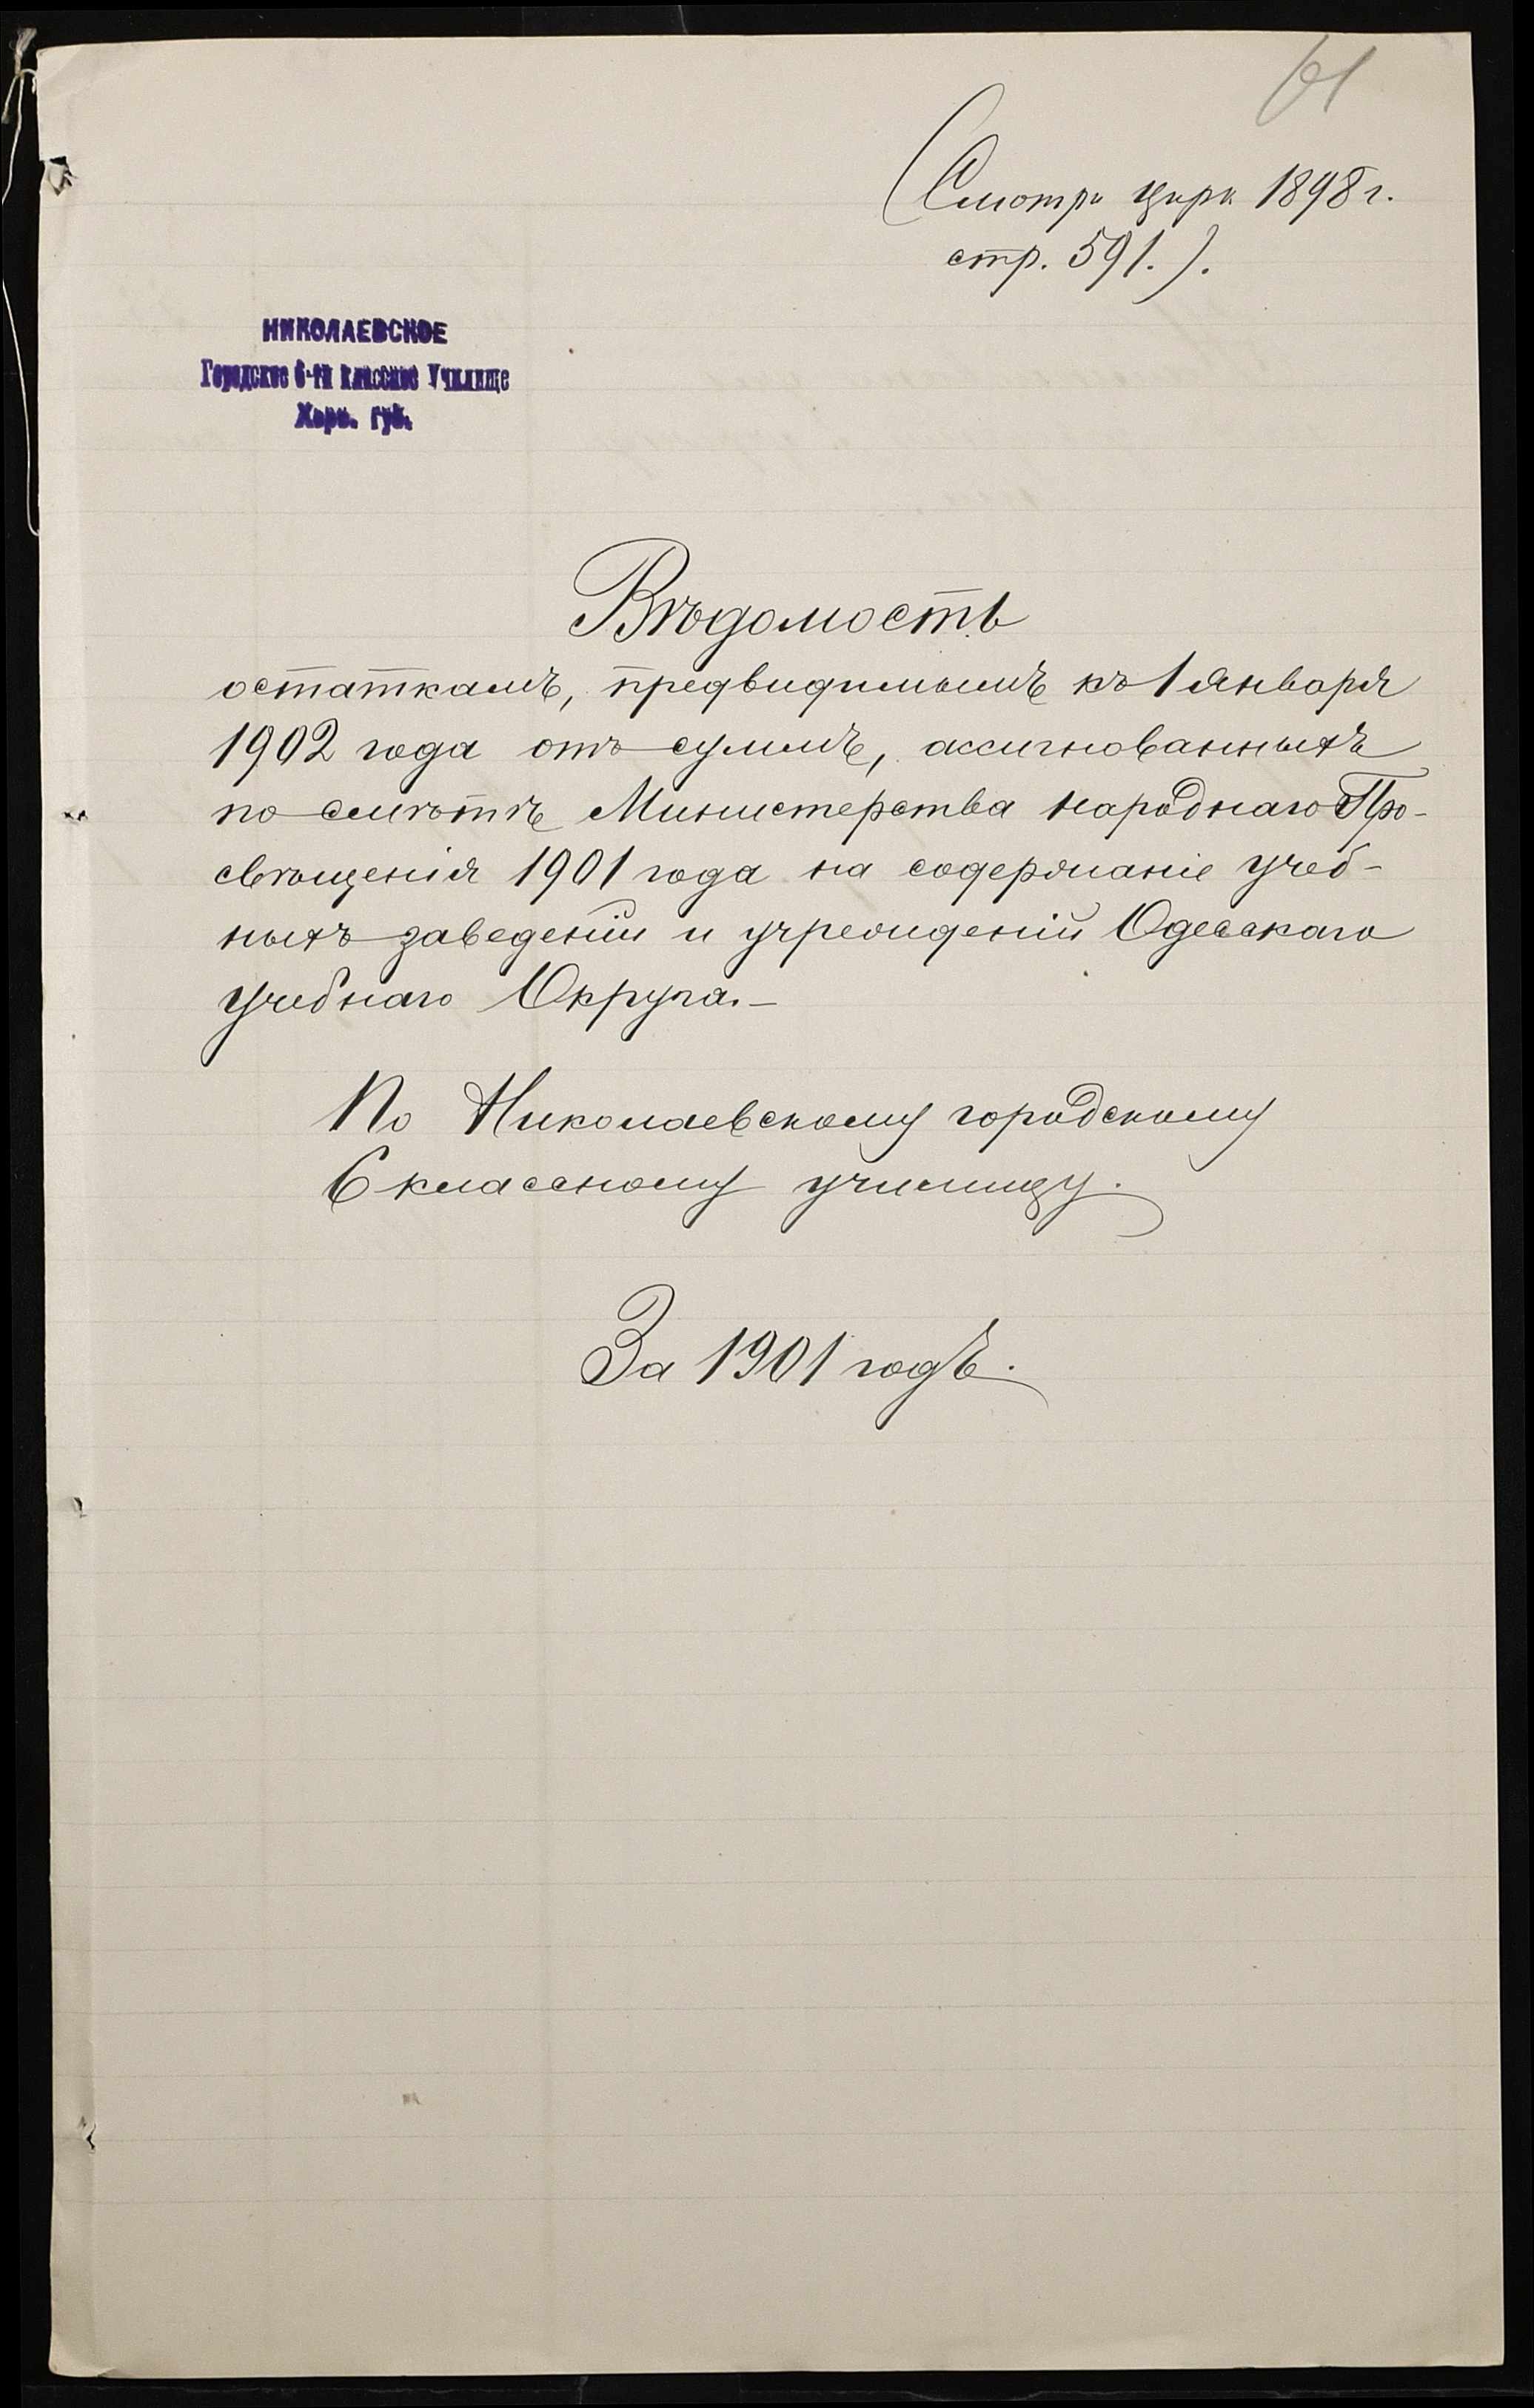 61
(Смотри цирк. 1898 г.
стр. 591.).
НИКОЛАЕВСКОЕ
Городское 6-ти классное Училище
Херс. губ.
Вѣдомость
остаткамъ, предвидимымъ къ 1 января
1902 года отъ суммъ, ассигнованныхъ
по смѣтѣ Министерства народнаго Про-
свѣщенія 1901 года на содержаніе учеб-
ныхъ заведеній и учрежденій Одесскаго
учебнаго Округа.—
По Николаевскому городскому
6 классному училищу.
За 1901 годъ.